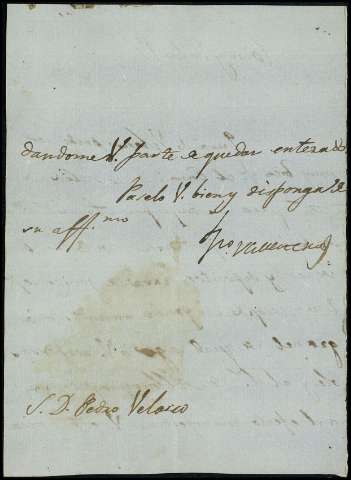 dandome V. parte a quedar enterado
Paselo V. bien y disponga de
su aff.mo
S. D. Pedro Velasco